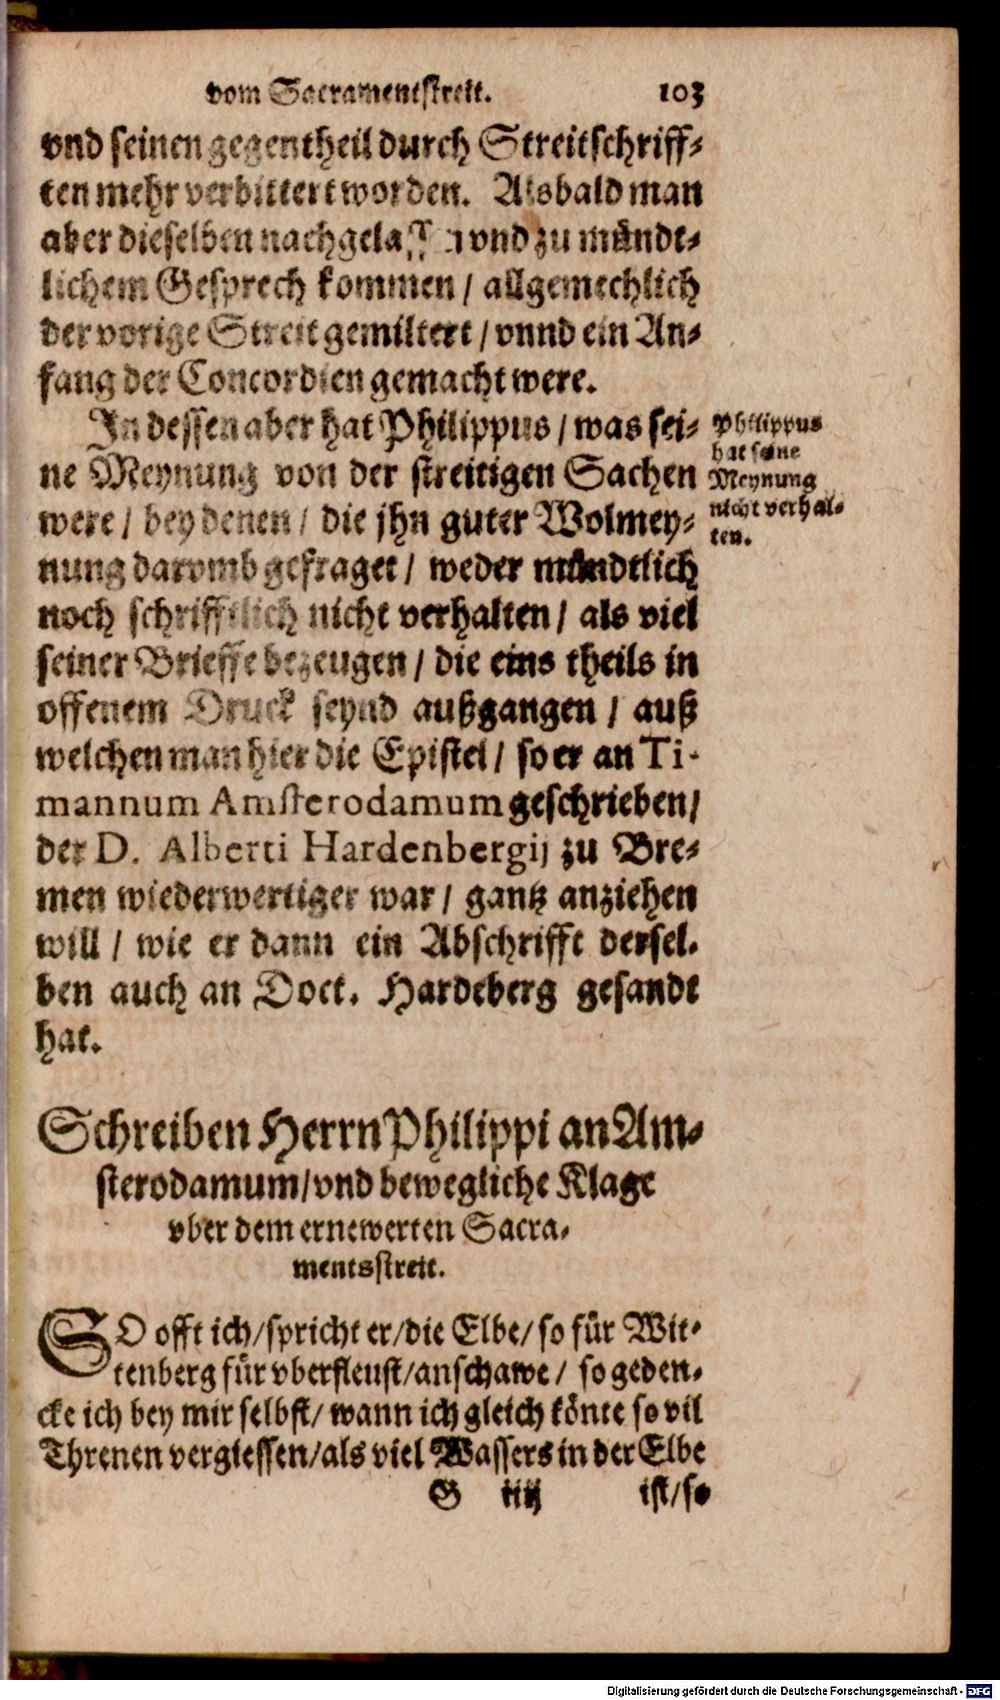 vom Sacramentsstreit. 103
vnd seinen gegentheil durch Streitschriff-
ten mehr verbittert worden. Alsbald man
aber dieselben nachgela vnd zu mündt-
lichem Gesprech kommen / allgemechlich
der vorige Streit gemiltert / vnnd ein An-
fang der Concordien gemacht were.
In dessen aber hat Philippus / was sei-
ne Meynung von der streitigen Sachen
were / bey denen / die jhn guter Wolmey-
nung darvmb gefraget / weder mündtlich
noch schrifftlich nicht verhalten / als viel
seiner Brieffe bezeugen / die eins theils in
offenem Druck seynd außgangen / auß
welchen man hier die Epistel / so er an Ti-
mannum Amsterodamum geschrieben /
der D. Alberti Hardenbergij zu Bre-
men wiederwertiger war / gantz anziehen
will / wie er dann ein Abschrifft dersel-
ben auch an Doct. Hardeberg gesandt
hat.
Philippus
hat seine
Meynung
nicht verhal-
ten.
Schreiben Herrn Philippi an Am-
sterodamum / vnd bewegliche Klage
vber dem ernewerten Sacra-
mentsstreit.
SO offt ich / spricht er / die Elbe / so für Wit-
tenberg für vberfleust / anschawe / so geden-
cke ich bey mir selbst / wann ich gleich könte so vil
Threnen vergiessen / als viel Wassers in der Elbe
G iiij ist / so
Digitalisierung gefördert durch die Deutsche Forschungsgemeinschaft - DFG